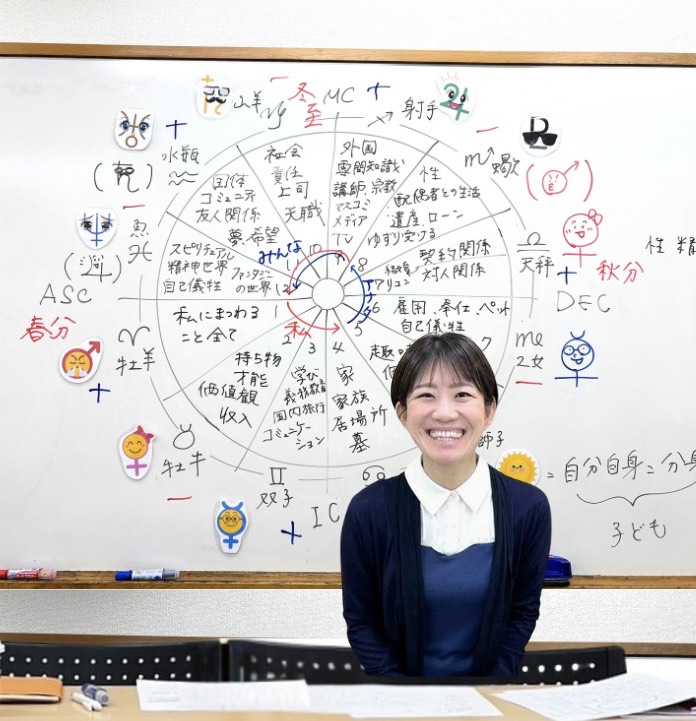 山羊
冬至
MC
+
射手
水瓶
蠍
社会
責任
上司
天職
外国
専門知識
講師 宗教
マスコミ
メディア
TV
性
配偶者との生活
遺産、ローン
ゆずり受ける
団体
コミュニティ
友人関係
夢、希望
みんな
魚
スピリチュアル
精神世界
自己犠牲
ファンタジー
の世界
契約関係
対人関係
天秤
+
秋分
性 精
ASC
DEC
春分
牡羊
私にまつわる
こと全て
私
雇用、奉仕、ペット
自己犠牲
乙女
10
9
8
11
12
1
2
3
4
5
6
7
持ち物
才能
価値観
収入
学び
義務教育
国内旅行
コミュニケー
ション
家
家族
居場所
墓
牡牛
双子
IC
= 自分自身 =
子ども